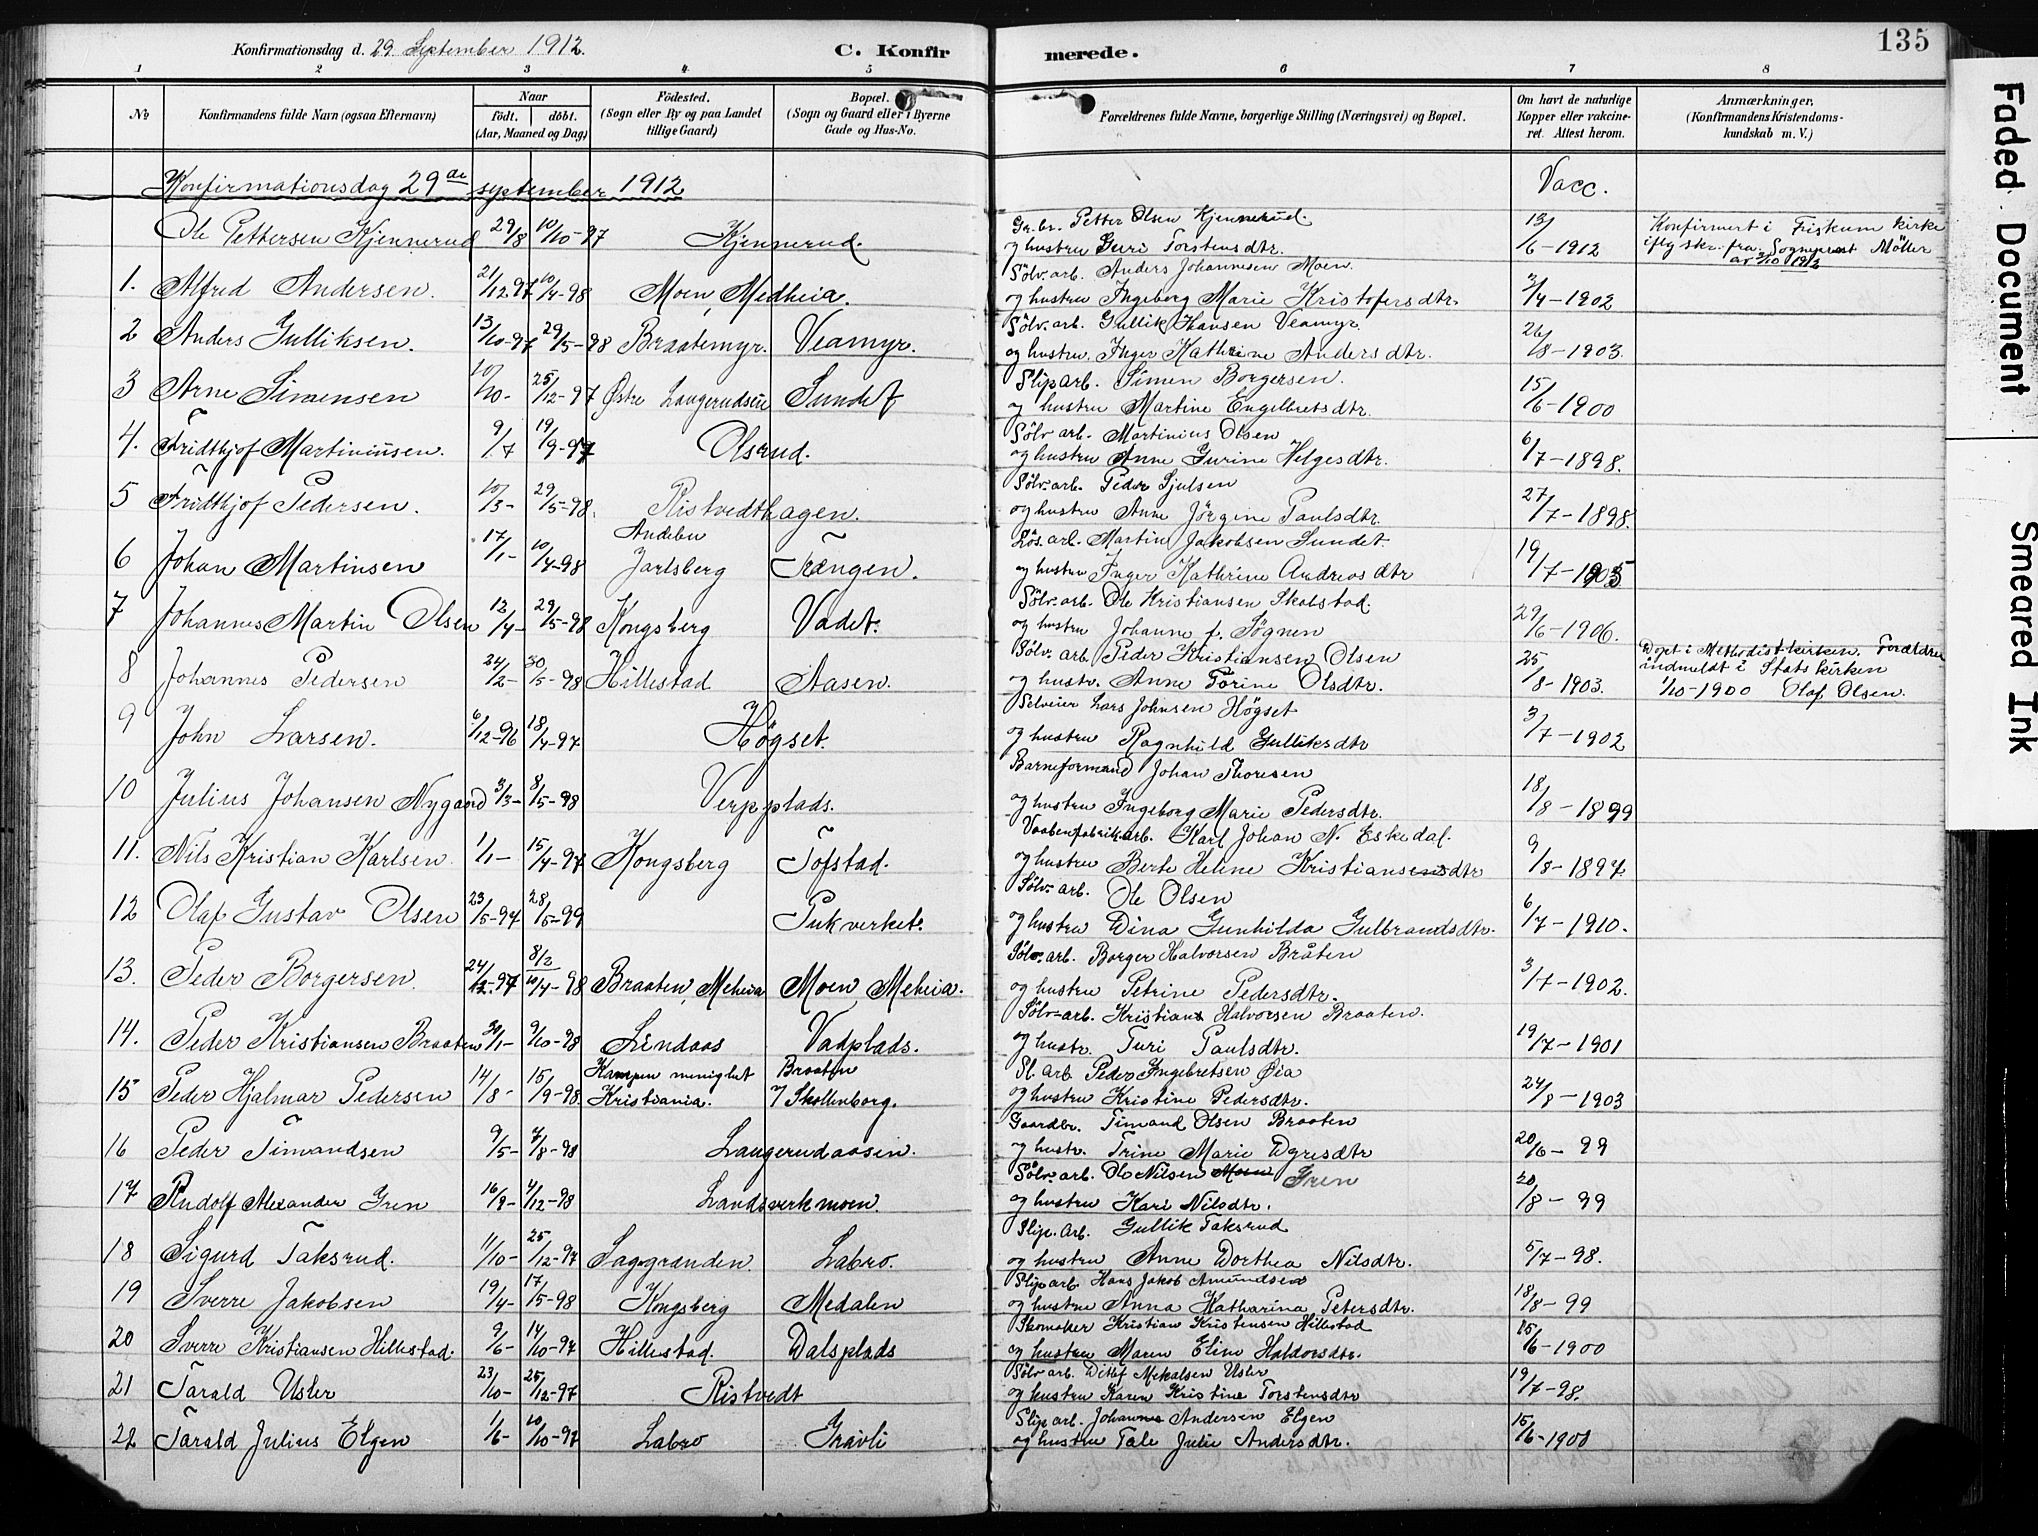 Konfirmationsdag d. 29. September 1912. C. Konfirmerede. 135
1 2 3 4 5 6 7 8
No Konfirmandens fulde Navn (ogsaa Efternavn) Naar født. døbt. (Aar, Maaned og Dag) Fødested. (Sogn eller By og paa Landet tillige Gaard) Bopæl. (Sogn og Gaard eller i Byerne Gade og Hus-No. Forældrenes fulde Navne, borgerlige Stilling (Næringsvei) og Bopæl. Om havt de naturlige Kopper eller vakcineret. Attest herom. Anmærkninger, (Konfirmandens Kristendomskundskab m. V.)
Konfirmationsdag 29de september 1912 Vacc.
Ole Pettersen Kjennerud 29/8 10/10-97 Kjennerud. Gr.br. Petter Olsen Kjennerud. 13/6-1912 Konfirmert i Fiskum kirke
og hustru Guri Torstensdtr. iflg skr. fra Sogneprest Möller av 2/10 1912
1. Alfred Andersen. 21/12.97 10/4-98 Moen, Medheia. Sölv.arb. Anders Johannesen Moen.
og hustru Ingeborg Marie Kristofersdtr. 2/4-1902
2 Anders Gulliksen. 13/10-97 29/5-98 Braatemyr. Veamyr. Sölv.arb. Gullik Hansen Veamyr.
og hustru. Inger Kathrine Andersdtr. 26/8-1903.
3 Arne Simensen 10/10- 25/12-97 Østre Langerudseie Sundet Sliparb. Simen Borgersen.
og hustru Martine Engelbretsdtr. 15/6-1900
4. Fridthjof Martiniusen. 9/7 19/9-97 Olsrud. Sölv arb. Martinius Olsen
og hustru Anne Gurine Helgesdtr. 6/7-1898.
5 Fridthjof Pedersen. 10/3- 29/5-98. Ristvedthagen. Sölv.arb. Peder Sjulsen
og hustru Anne Jörgine Paulsdtr. 27/7-1898.
6 Johan Martinsen 17/1- 10/4-98 Andebu Jarlsberg Trængen. Lös.arb. Martin Jakobsen Sundet.
og hustru Inger Kathrine Andreasdtr 19/7-1905
7 Johannes Martin Olsen 12/4- 29/5-98 Kongsberg Vadet. Sölv.arb. Ole Kristiansen Skolstad.
og hustru Johanne f. Sögnen 29/6-1906.
8 Johannes Pedersen 24/2- 30/5-98 Hillestad Aasen. Sölv. arb. Peder Kristiansen Olsen Döpt i Methodistkirken. Forældre
og hustr. Anne Torine Olsdtr. 25/8-1903. indmeldt i Statskirken
1/10-1900 Olaf Olsen.
9 John Larsen. 6/12-96 18/4-97 Högset. Selveier Lars Johnsen Högset
og hustru Ragnhild Gulliksdtr 3/7-1902
10 Julius Johansen Nygaard 3/3- 8/5-98 Verpplads. Barneformand Johan Thoresen
og hustru Ingeborg Marie Pedersdtr. 18/8-1899
11. Nils Kristian Karlsen. 1/1- 15/4-97 Kongsberg Tofstad. Vaabenfabrikarb. Karl Johan N. Eskedal.
og hustru Berte Heline Kristiansensdtr 9/8-1897
12 Olaf Gustav Olsen 23/5-97 28/5-99 Pukverket. Sölv. arb. Ole Olsen
og hustru Dina Gunhilda Gulbrandsdtr. 6/7-1910.
13. Peder Borgersen. 24/12-97 8/2 10/4-98 Braaten, Meheia Moen, Meheia. Sölv.arb. Borger Halvorsen Bråten
og hustru Petrine Pedersdtr. 3/7-1902.
14. Peder Kristiansen Braaten 30/1- 9/10-98 Lindaas Vadplads. Sölv-arb. Kristian Halvorsen Braaten.
og hustr. Turi Paulsdtr. 19/7-1901
15 Peder Hjalmar Pedersen 14/8- 15/9-98. Kampen menighet Kristiania. Braaten 7 Skollenborg. Sl. arb Peder Ingebretsen Øia
og hustru Kristine Pedersdtr. 24/8-1903
16 Peder Timandsen 9/5- 7/8-98 Langerudaasen. Gaardbr. Timand Olsen Braaten
og hustr. Trine Marie Dyresdtr 20/6-99
17 Rudolf Alexander Gren 16/9- 4/12-98 Landsverkmoen. Sölv.arb. Ole Nilsen Moen Gren
og hustru Kari Nilsdtr. 20/8-99
18 Sigurd Taksrud. 11/10- 25/12-97 Saggrenden Labro. Slip.Arb. Gullik Taksrud
og hustru Anne Dorthea Nilsdtr. 5/7-98.
19 Sverre Jakobsen 19/4- 17/5-98 Kongsberg Medalen Sliparb. Hans Jakob Amundsen
og hustru Anna Katharina Petersdtr. 18/8-99
20 Sverre Kristiansen Hillestad. 9/6- 14/10-97 Hillestad. Dalsplads Skomaker Kristian Kristensen Hillestad
og hustru Maren Eline Haldorsdtr. 15/6-1900
21 Tarald Usler 23/10- 25/12-97 Ristvedt Sölv arb. Ditlef Mekalsen Usler
og hustru Karen Kristine Torstensdtr 19/7-98.
22 Tarald Julius Elgen 1/6- 10/10-97 Labro Gravli Slip arb. Johannes Andersen Elgen
og hustru Tale Julie Andersdtr. 15/6-1900
Faded Document
Smeared Ink